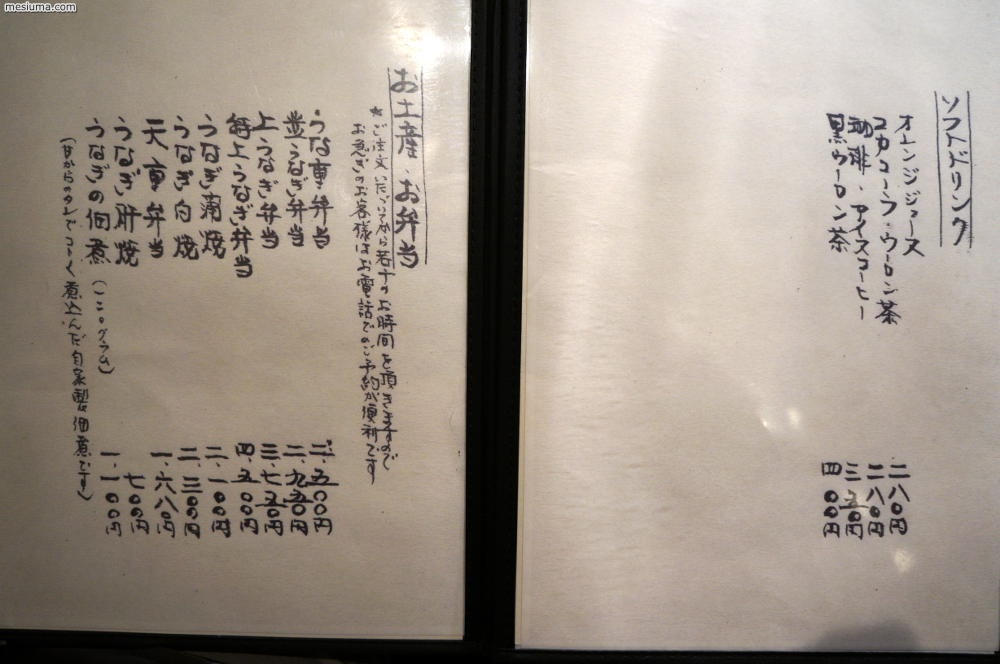 mesiuma.com
ソフトドリンク
オレンジジュース 二八〇円
コカコーラ・ウーロン茶 二八〇円
珈琲・アイスコーヒー 三五〇円
黒ウーロン茶 四〇〇円
お土産・お弁当
*ご注文いただいてから若干のお時間を頂きますので
お急ぎのお客様はお電話でのご予約が便利です
・うな重弁当 二・五〇〇円
並うなぎ弁当 二・九五〇円
上うなぎ弁当 三・七五〇円
特上うなぎ弁当 四・五〇〇円
うなぎ蒲焼 二・一〇〇円
うなぎ白焼 二・三〇〇円
天重弁当 一・六八〇円
うなぎ肝焼 七〇〇円
うなぎの佃煮(一〇〇グラム) 一・一〇〇円
(昔からのタレでコトコト煮込んだ自家製佃煮です)